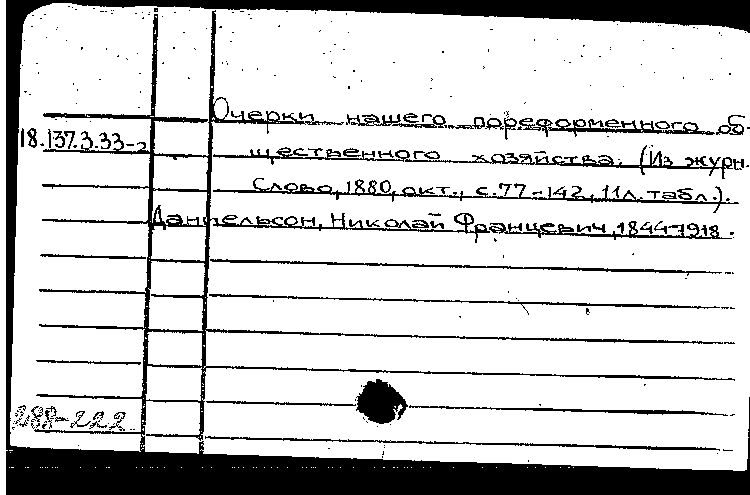 Очерки нашего пореформенного об-
18.137.3.33-2
щественного хозяйства. (Из журн.
Слово, 1880, окт., с.77-142, 11л. табл.).
Даниельсон, Николай Францевич, 1844-1918.
288-222